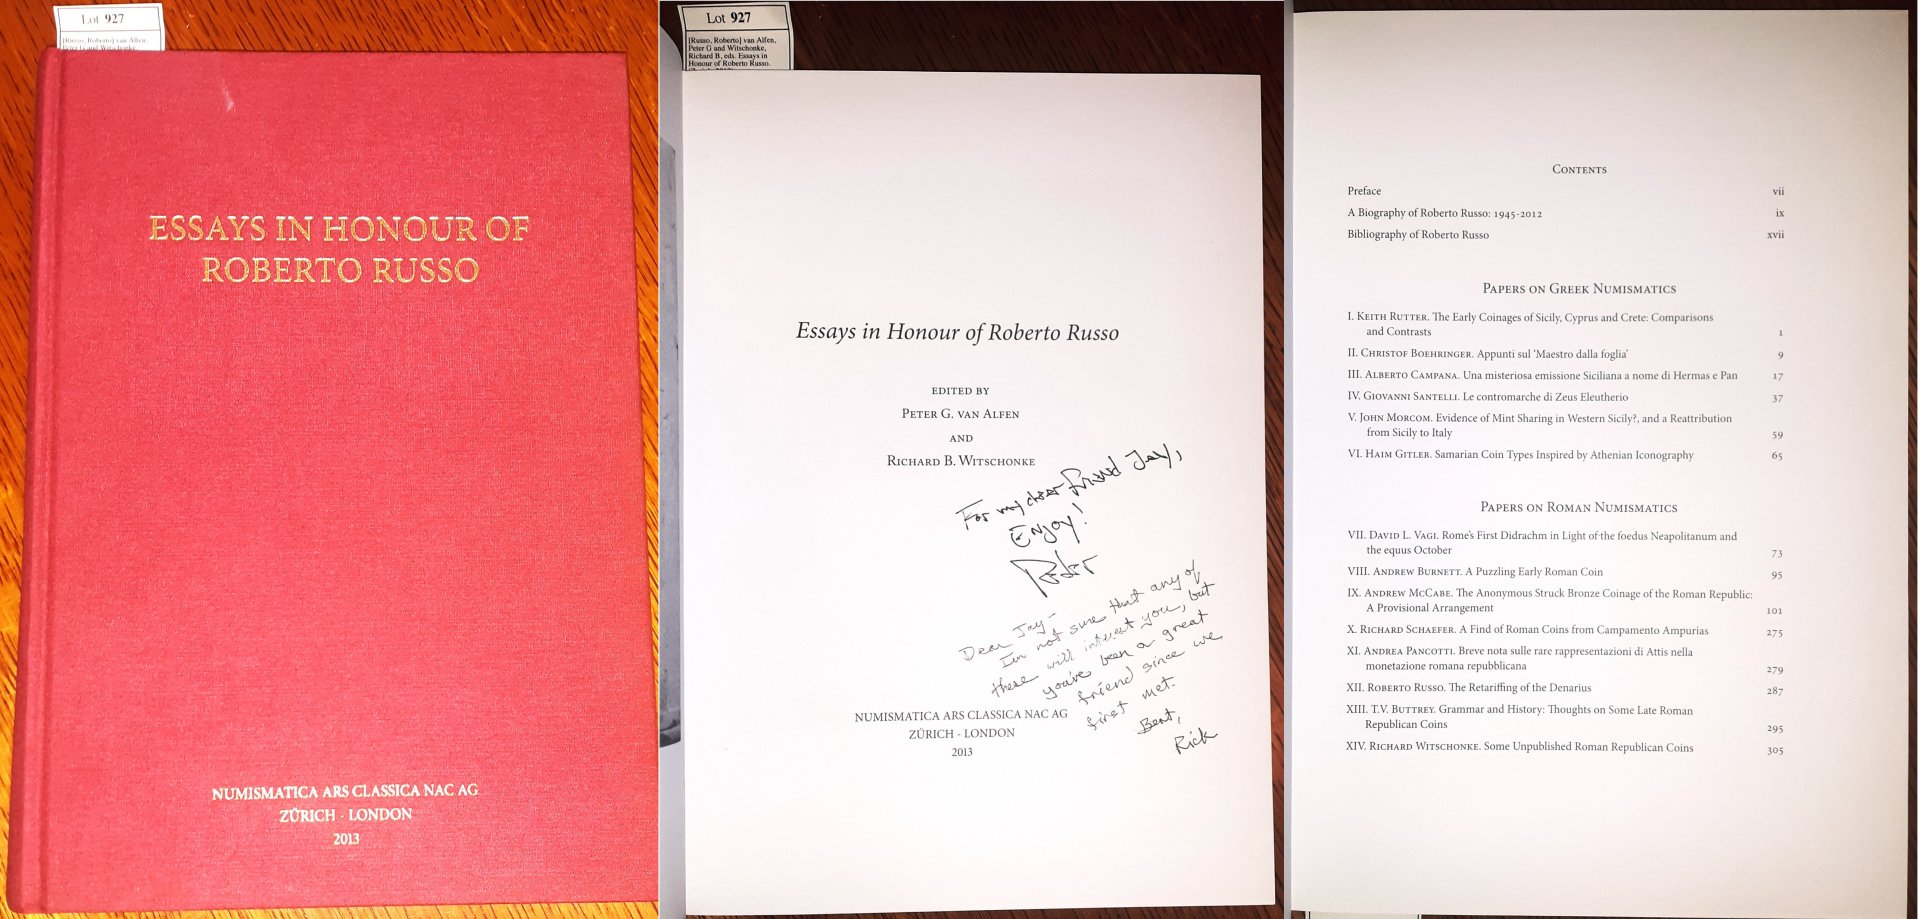 Lot 927
[Russo, Roberto] van Alfen,
Peter G and Witschonke,
ESSAYS IN HONOUR OF
ROBERTO RUSSO
NUMISMATICA ARS CLASSICA NAC AG
ZÜRICH - LONDON
2013
Lot 927
[Russo, Roberto] van Alfen,
Peter G and Witschonke,
Richard B, eds. Essays in
Honour of Roberto Russo.
Essays in Honour of Roberto Russo
EDITED BY
PETER G. VAN ALFEN
AND
RICHARD B. WITSCHONKE
For my dear friend Jay,
Enjoy!
Dear Jay-
I'm not sure that any of
these will interest you, but
you've been a great
friend since we
first met.
Best,
Rick
NUMISMATICA ARS CLASSICA NAC AG
ZÜRICH - LONDON
2013
CONTENTS
Preface vii
A Biography of Roberto Russo: 1945-2012 ix
Bibliography of Roberto Russo xvii
PAPERS ON GREEK NUMISMATICS
I. KEITH RUTTER. The Early Coinages of Sicily, Cyprus and Crete: Comparisons
and Contrasts 1
II. CHRISTOF BOEHRINGER. Appunti sul 'Maestro dalla foglia' 9
III. ALBERTO CAMPANA. Una misteriosa emissione Siciliana a nome di Hermas e Pan 17
IV. GIOVANNI SANTELLI. Le contromarche di Zeus Eleutherio 37
V. JOHN MORCOM. Evidence of Mint Sharing in Western Sicily?, and a Reattribution
from Sicily to Italy 59
VI. HAIM GITLER. Samarian Coin Types Inspired by Athenian Iconography 65
PAPERS ON ROMAN NUMISMATICS
VII. DAVID L. VAGI. Rome's First Didrachm in Light of the foedus Neapolitanum and
the equus October 73
VIII. ANDREW BURNETT. A Puzzling Early Roman Coin 95
IX. ANDREW MCCABE. The Anonymous Struck Bronze Coinage of the Roman Republic:
A Provisional Arrangement 101
X. RICHARD SCHAEFER. A Find of Roman Coins from Campamento Ampurias 275
XI. ANDREA PANCOTTI. Breve nota sulle rare rappresentazioni di Attis nella
monetazione romana repubblicana 279
XII. ROBERTO RUSSO. The Retariffing of the Denarius 287
XIII. T.V. BUTTREY. Grammar and History: Thoughts on Some Late Roman
Republican Coins 295
XIV. RICHARD WITSCHONKE. Some Unpublished Roman Republican Coins 305